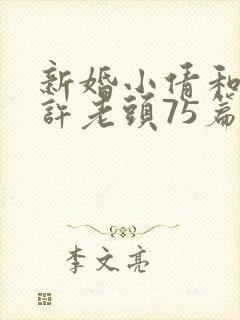 新婚小倩和
許老頭75篇
李文亮